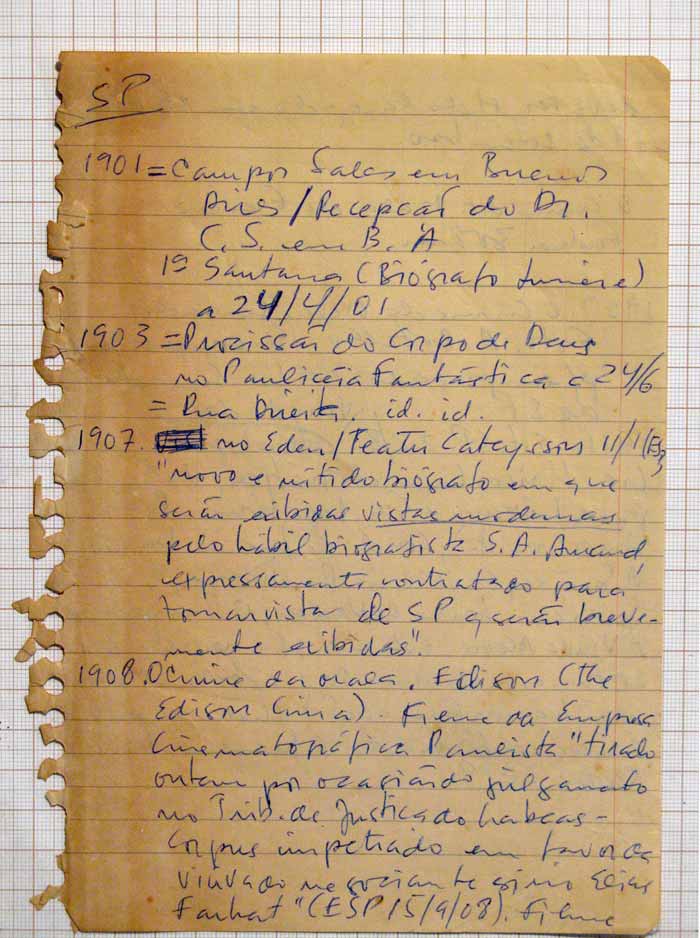 SP
1901 = Campos Sales em Buenos
Aires / Recepção do Dr.
C. S. em B. A
1º Santana (Biógrafo Lumière)
a 24/4/01
1903 = Procissão do Corpo de Deus
no Pauliceia Fantástica a 24/6
= Rua Direita. id. id.
1907. no Eden / Teatro 11/1 (ESP
"novo e nitido biógrafo em que
serão exibidas vistas modernas
pelo hábil biografista S. A.
expressamente contratado para
tomar vistas de SP q serão breve-
mente exibidas".
1908. O crime da mala. Edison (The
Edison Cinema). Filme da Empresa
Cinematográfica Paulista "tirado
ontem por ocasião do julgamento
no Trib. de Justiça do habeas-
corpus impetrado em favor da
viúva do negociante sirio Elias
Farhat" (ESP 15/9/08). Filme